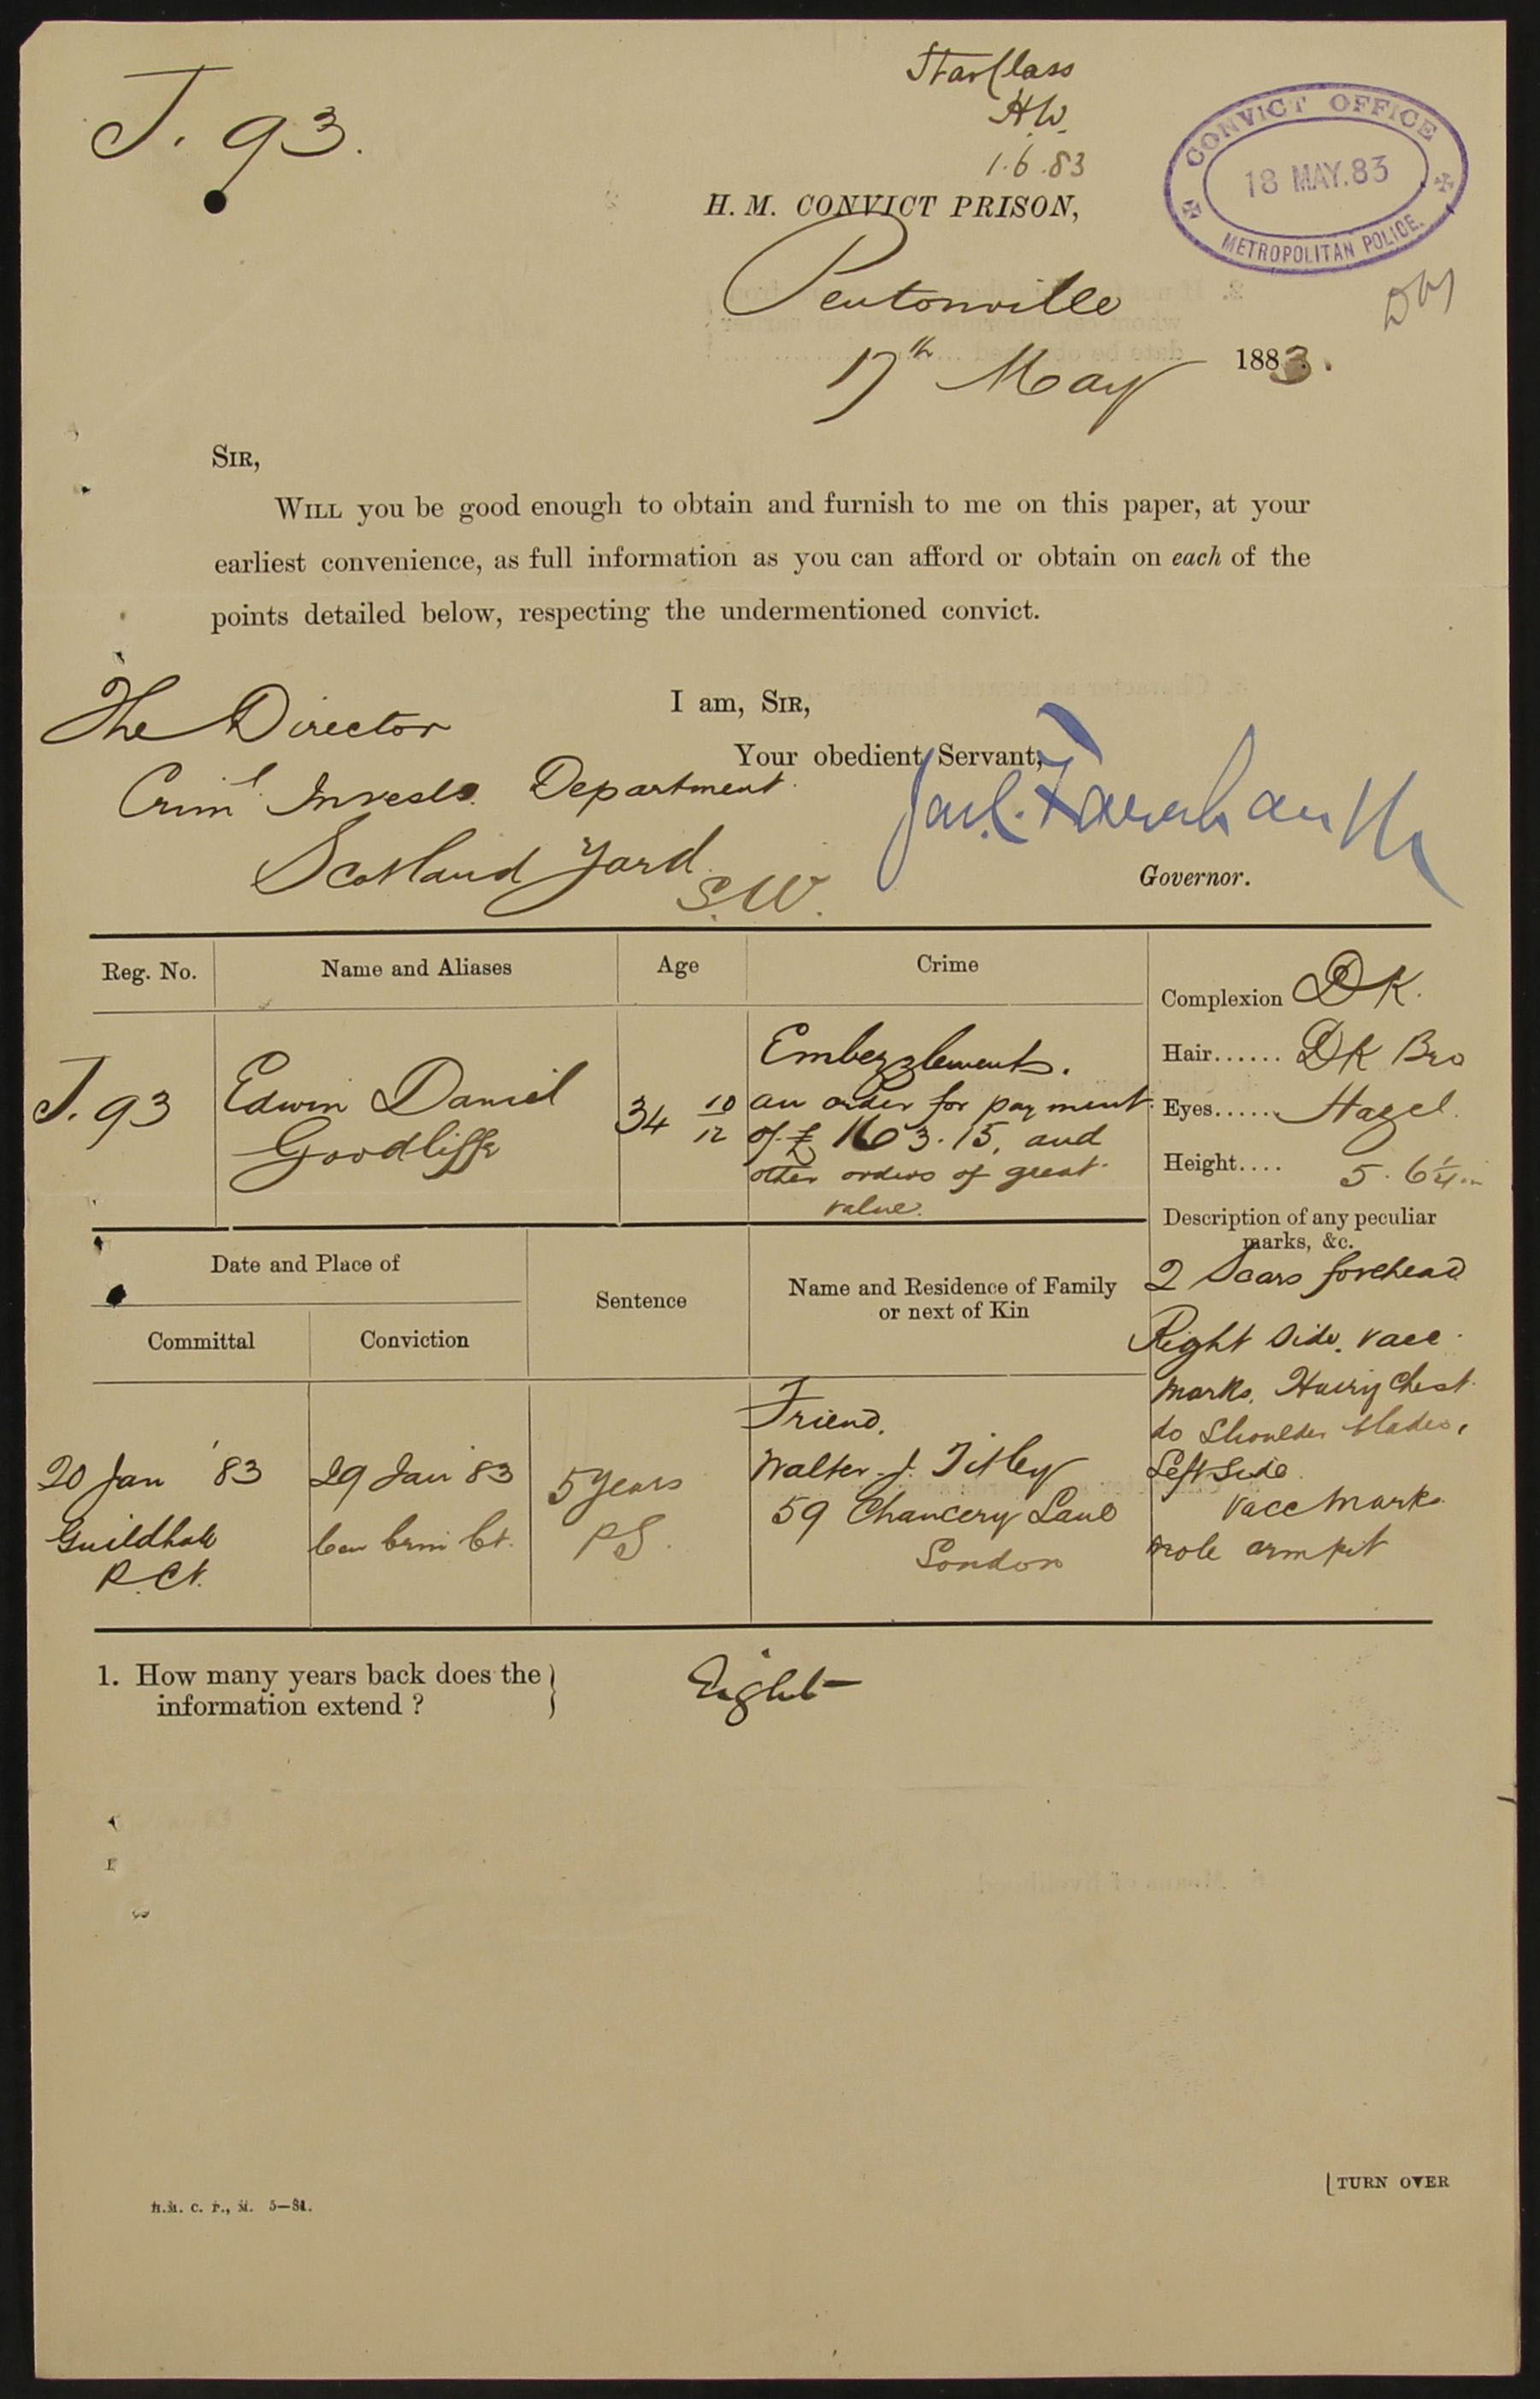 J. 93.
Star Class
H.W.
1.6.83
CONVICT OFFICE
18 MAY.83
METROPOLITAN POLICE.
H. M. CONVICT PRISON,
Pentonville
17th May 1883.
SIR,
WILL you be good enough to obtain and furnish to me on this paper, at your
earliest convenience, as full information as you can afford or obtain on each of the
points detailed below, respecting the undermentioned convict.
I am, SIR,
Your obedient Servant,
Governor.
The Director
Criml. Investn. Department
Scotland Yard
S.W.
Reg. No.
Name and Aliases
Age
Crime
J. 93
Edwin Daniel
Goodliffe
34 10/12
Embezzlement.
an order for payment
of £163.15, and
other orders of great
value.
Complexion DK.
Hair...... DK Bro
Eyes...... Hazel.
Height.... 5. 6¼ in
Description of any peculiar
marks, &c.
2 Scars forehead
Right Side. Vacc.
marks. Hairy Chest.
do Shoulder blades,
Left Side
Vacc Marks
mole armpit
Date and Place of
Committal
Conviction
Sentence
Name and Residence of Family
or next of Kin
20 Jan '83
Guildhall
P. Ct.
29 Jan '83
Cen Crim Ct.
5 Years
P S.
Friend.
Walter J. Titley
59 Chancery Lane
London
1. How many years back does the
information extend ?
Eight
[TURN OVER
H.M. C. P., M. 5—81.